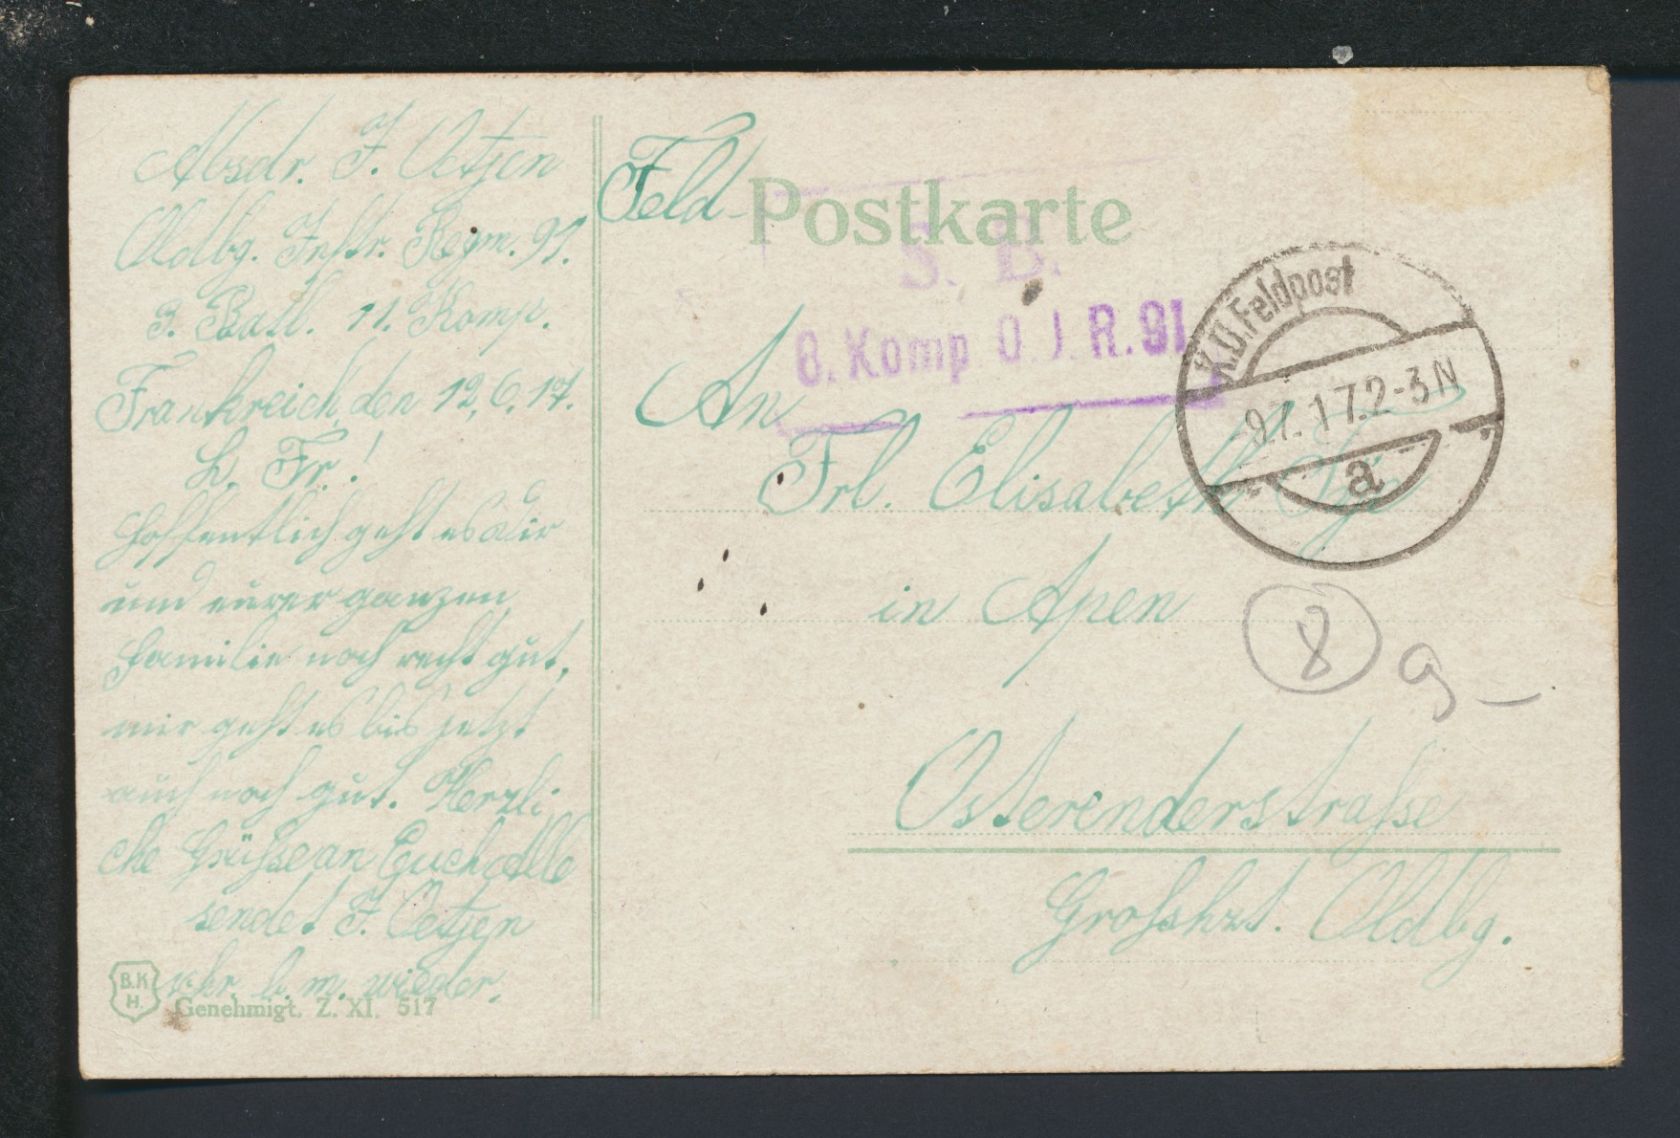 Absdr. F. Oetjen
Oldbg. Inftr. Regm. 91.
3. Batl. 11. Komp.
Frankreich, den 12.6.17.
L. Fr.!
Hoffentlich geht es Dir
und eurer ganzen
Familie noch recht gut,
mir geht es bis jetzt
auch noch gut. Herzli
che Grüßse an Euch Alle
sendet F. Oetjen
schr. b. m. wieder.
B.K.
H.
Genehmigt. Z. XI. 517
Feld-Postkarte
S. B.
8. Komp O. J. R. 91
K.D. Feldpost
-9 7. 17. 2-3 N
a
An
Frl. Elisabeth
in Apen
8
9 –
Osterenderstraße
Großhzt. Oldbg.